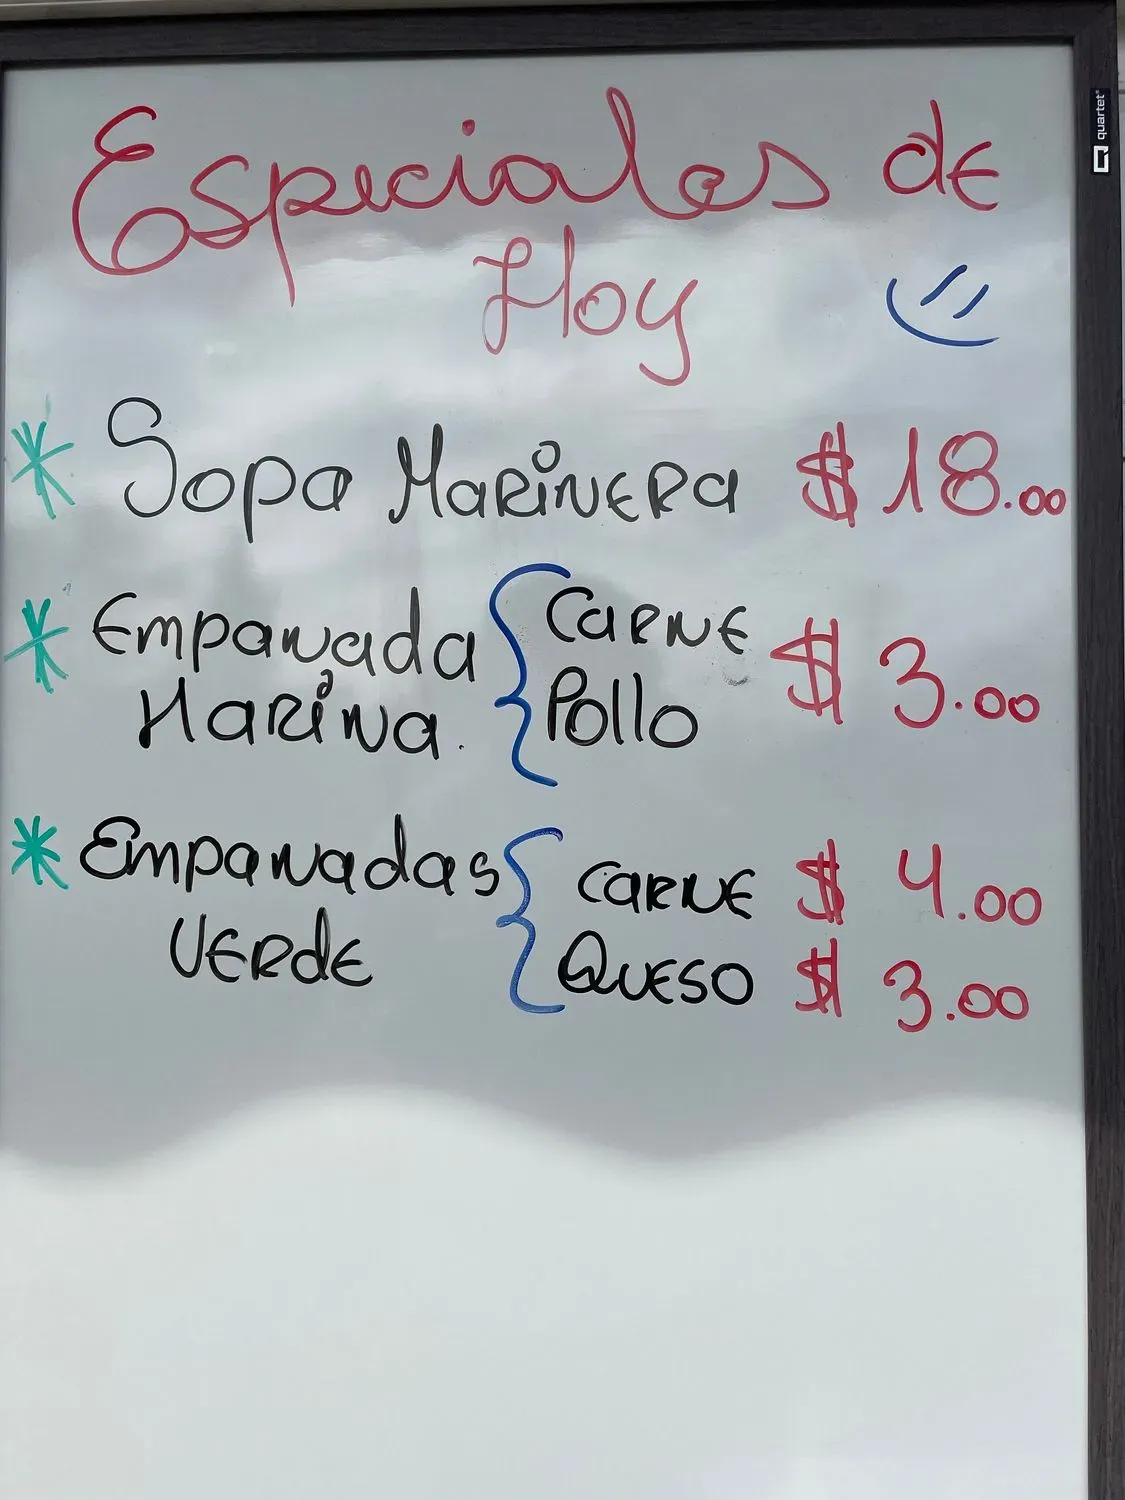 Especiales de
Hoy
* Sopa Marinera $ 18.00
* Empanada { Carne $ 3.00
Harina. Pollo
* Empanadas { Carne $ 4.00
Verde Queso $ 3.00
quartet